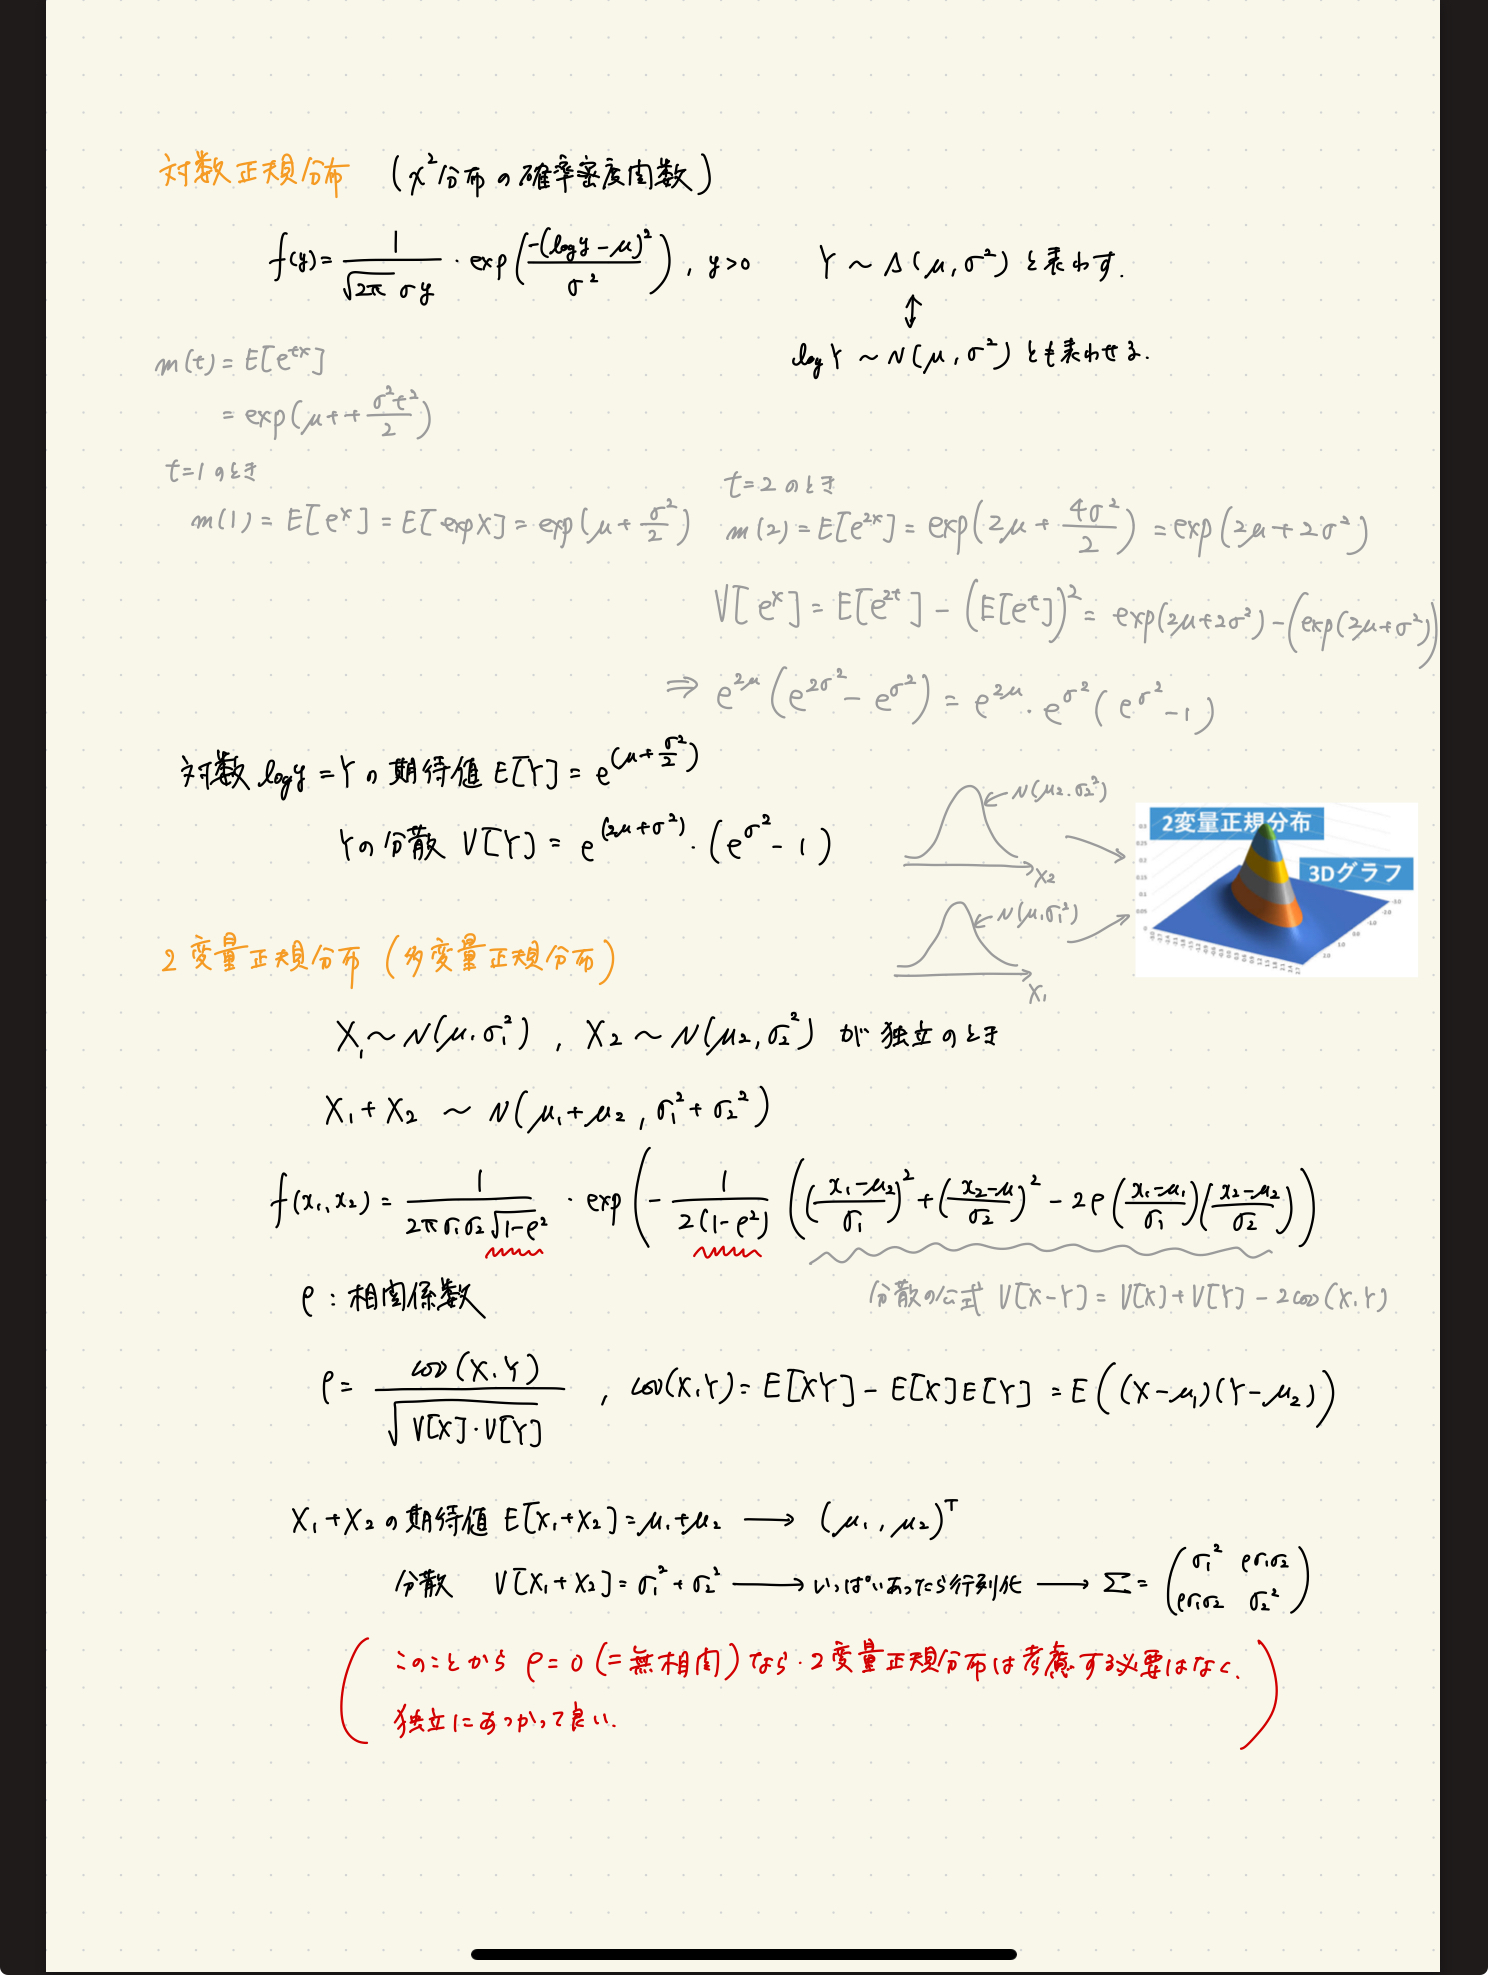 対数正規分布 (χ²分布の確率密度関数)
f(y) = 1/(√2π σy) · exp(-(log y - μ)²/σ²), y>0
Y ~ Λ(μ, σ²) と表わす.
↕
log Y ~ N(μ, σ²) とも表わせる.
m(t) = E[e^tx]
= exp(μt + σ²t²/2)
t=1 のとき
m(1) = E[e^x] = E[exp X] = exp(μ + σ²/2)
t=2 のとき
m(2) = E[e^2x] = exp(2μ + 4σ²/2) = exp(2μ + 2σ²)
V[e^x] = E[e^2t] - (E[e^t])² = exp(2μ+2σ²) - (exp(2μ+σ²))
⇒ e^2μ (e^2σ² - e^σ²) = e^2μ · e^σ² (e^σ² - 1)
対数 log y = Y の期待値 E[Y] = e^(μ+σ²/2)
Yの分散 V[Y] = e^(2μ+σ²) · (e^σ² - 1)
N(μ2, σ2²)
X2
N(μ, σ1²)
X1
2変量正規分布
3Dグラフ
2変量正規分布 (多変量正規分布)
X1 ~ N(μ, σ1²), X2 ~ N(μ2, σ2²) が独立のとき
X1 + X2 ~ N(μ1+μ2, σ1² + σ2²)
f(x1, x2) = 1/(2πσ1σ2√1-ρ²) · exp(- 1/(2(1-ρ²)) (((x1-μ2)/σ1)² + ((x2-μ)/σ2)² - 2ρ((x1-μ1)/σ1)((x2-μ2)/σ2)))
ρ : 相関係数
分散の公式 V[X-Y] = V[X] + V[Y] - 2cov(X,Y)
ρ = cov(X,Y)/√V[X]·V[Y], cov(X,Y) = E[XY] - E[X]E[Y] = E((X-μ1)(Y-μ2))
X1+X2の期待値 E[X1+X2] = μ1+μ2 → (μ1, μ2)^T
分散 V[X1+X2] = σ1² + σ2² → いっぱいあったら行列化 → Σ = (σ1² ρσ1σ2 ρσ1σ2 σ2²)
(このことから ρ=0 (=無相関)なら・2変量正規分布は考慮する必要はなく、
独立にあつかって良い.)